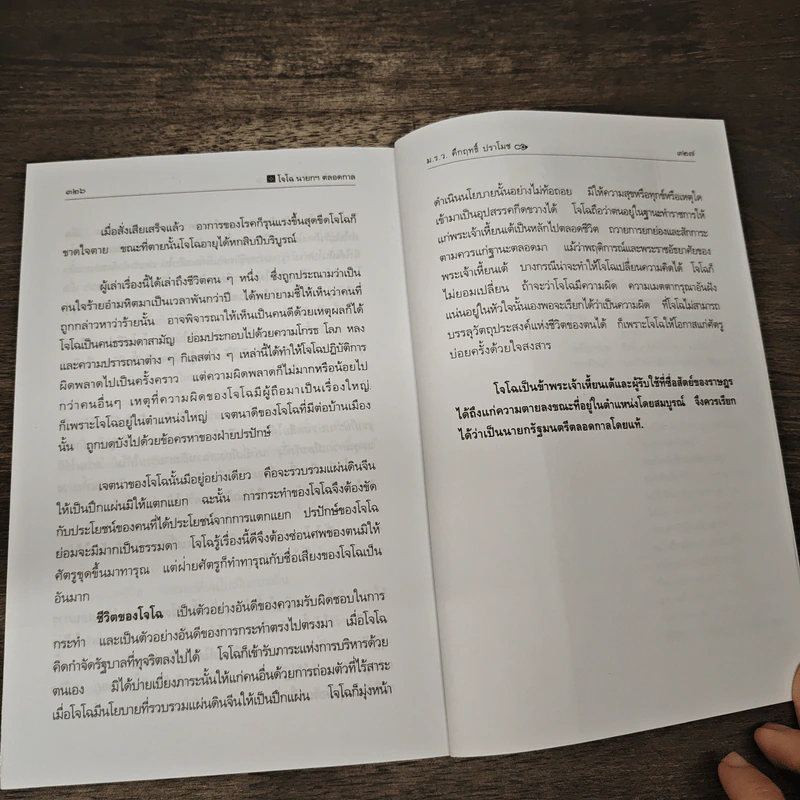 ๓๒๖
โจโฉ นายกฯ ตลอดกาล
เมื่อสั่งเสียเสร็จแล้ว อาการของโรคก็รุนแรงขึ้นสุดขีดโจโฉก็
ขาดใจตาย ขณะที่ตายนั้นโจโฉอายุได้หกสิบปีบริบูรณ์
ผู้เล่าเรื่องนี้ได้เล่าถึงชีวิตคน ๆ หนึ่ง ซึ่งถูกประณามว่าเป็น
คนใจร้ายอำมหิตมาเป็นเวลาพันกว่าปี ได้พยายามชี้ให้เห็นว่าคนที่
ถูกกล่าวหาว่าร้ายนั้น อาจพิจารณาให้เห็นเป็นคนดีด้วยเหตุผลก็ได้
โจโฉเป็นคนธรรมดาสามัญ ย่อมประกอบไปด้วยความโกรธ โลภ หลง
และความปรารถนาต่าง ๆ กิเลสต่าง ๆ เหล่านี้ได้ทำให้โจโฉปฏิบัติการ
ผิดพลาดไปเป็นครั้งคราว แต่ความผิดพลาดก็ไม่มากหรือน้อยไป
กว่าคนอื่นๆ เหตุที่ความผิดของโจโฉมีผู้ถือมาเป็นเรื่องใหญ่
ก็เพราะโจโฉอยู่ในตำแหน่งใหญ่ เจตนาดีของโจโฉที่มีต่อบ้านเมือง
นั้น ถูกบดบังไปด้วยข้อครหาของฝ่ายปรปักษ์
เจตนาของโจโฉนั้นมีอยู่อย่างเดียว คือจะรวบรวมแผ่นดินจีน
ให้เป็นปึกแผ่นมิให้แตกแยก ฉะนั้น การกระทำของโจโฉจึงต้องขัด
กับประโยชน์ของคนที่ได้ประโยชน์จากการแตกแยก ปรปักษ์ของโจโฉ
ย่อมจะมีมากเป็นธรรมดา โจโฉรู้เรื่องนี้ดีจึงต้องซ่อนศพของตนมิให้
ศัตรูขุดขึ้นมาทารุณ แต่ฝ่ายศัตรูก็ทำทารุณกับชื่อเสียงของโจโฉเป็น
อันมาก
ชีวิตของโจโฉ เป็นตัวอย่างอันดีของความรับผิดชอบในการ
กระทำ และเป็นตัวอย่างอันดีของการกระทำตรงไปตรงมา เมื่อโจโฉ
คิดกำจัดรัฐบาลที่ทุจริตลงไปได้ โจโฉก็เข้ารับภาระแห่งการบริหารด้วย
ตนเอง มิได้บ่ายเบี่ยงภาระนั้นให้แก่คนอื่นด้วยการถ่อมตัวที่ไร้สาระ
เมื่อโจโฉมีนโยบายที่รวบรวมแผ่นดินจีนให้เป็นปึกแผ่น โจโฉก็มุ่งหน้า
ม.ร.ว. คึกฤทธิ์ ปราโมช
๓๒๗
ดำเนินนโยบายนั้นอย่างไม่ท้อถอย มิให้ความสุขหรือทุกข์หรือเหตุใด
เข้ามาเป็นอุปสรรคกีดขวางได้ โจโฉถือว่าตนอยู่ในฐานะทำราชการให้
แก่พระเจ้าเหี้ยนเต้เป็นหลักไปตลอดชีวิต ถวายการยกย่องและสักการะ
ตามควรแก่ฐานะตลอดมา แม้ว่าพฤติการณ์และพระราชอัธยาศัยของ
พระเจ้าเหี้ยนเต้ บางกรณีน่าจะทำให้โจโฉเปลี่ยนความคิดได้ โจโฉก็
ไม่ยอมเปลี่ยน ถ้าจะว่าโจโฉมีความผิด ความเมตตากรุณาอันฝัง
แน่นอยู่ในหัวใจนั้นเองพอจะเรียกได้ว่าเป็นความผิด ที่โจโฉไม่สามารถ
บรรลุวัตถุประสงค์แห่งชีวิตของตนได้ ก็เพราะโจโฉให้โอกาสแก่ศัตรู
บ่อยครั้งด้วยใจสงสาร
โจโฉเป็นข้าพระเจ้าเหี้ยนเต้และผู้รับใช้ที่ซื่อสัตย์ของราษฎร
ได้ถึงแก่ความตายลงขณะที่อยู่ในตำแหน่งโดยสมบูรณ์ จึงควรเรียก
ได้ว่าเป็นนายกรัฐมนตรีตลอดกาลโดยแท้.